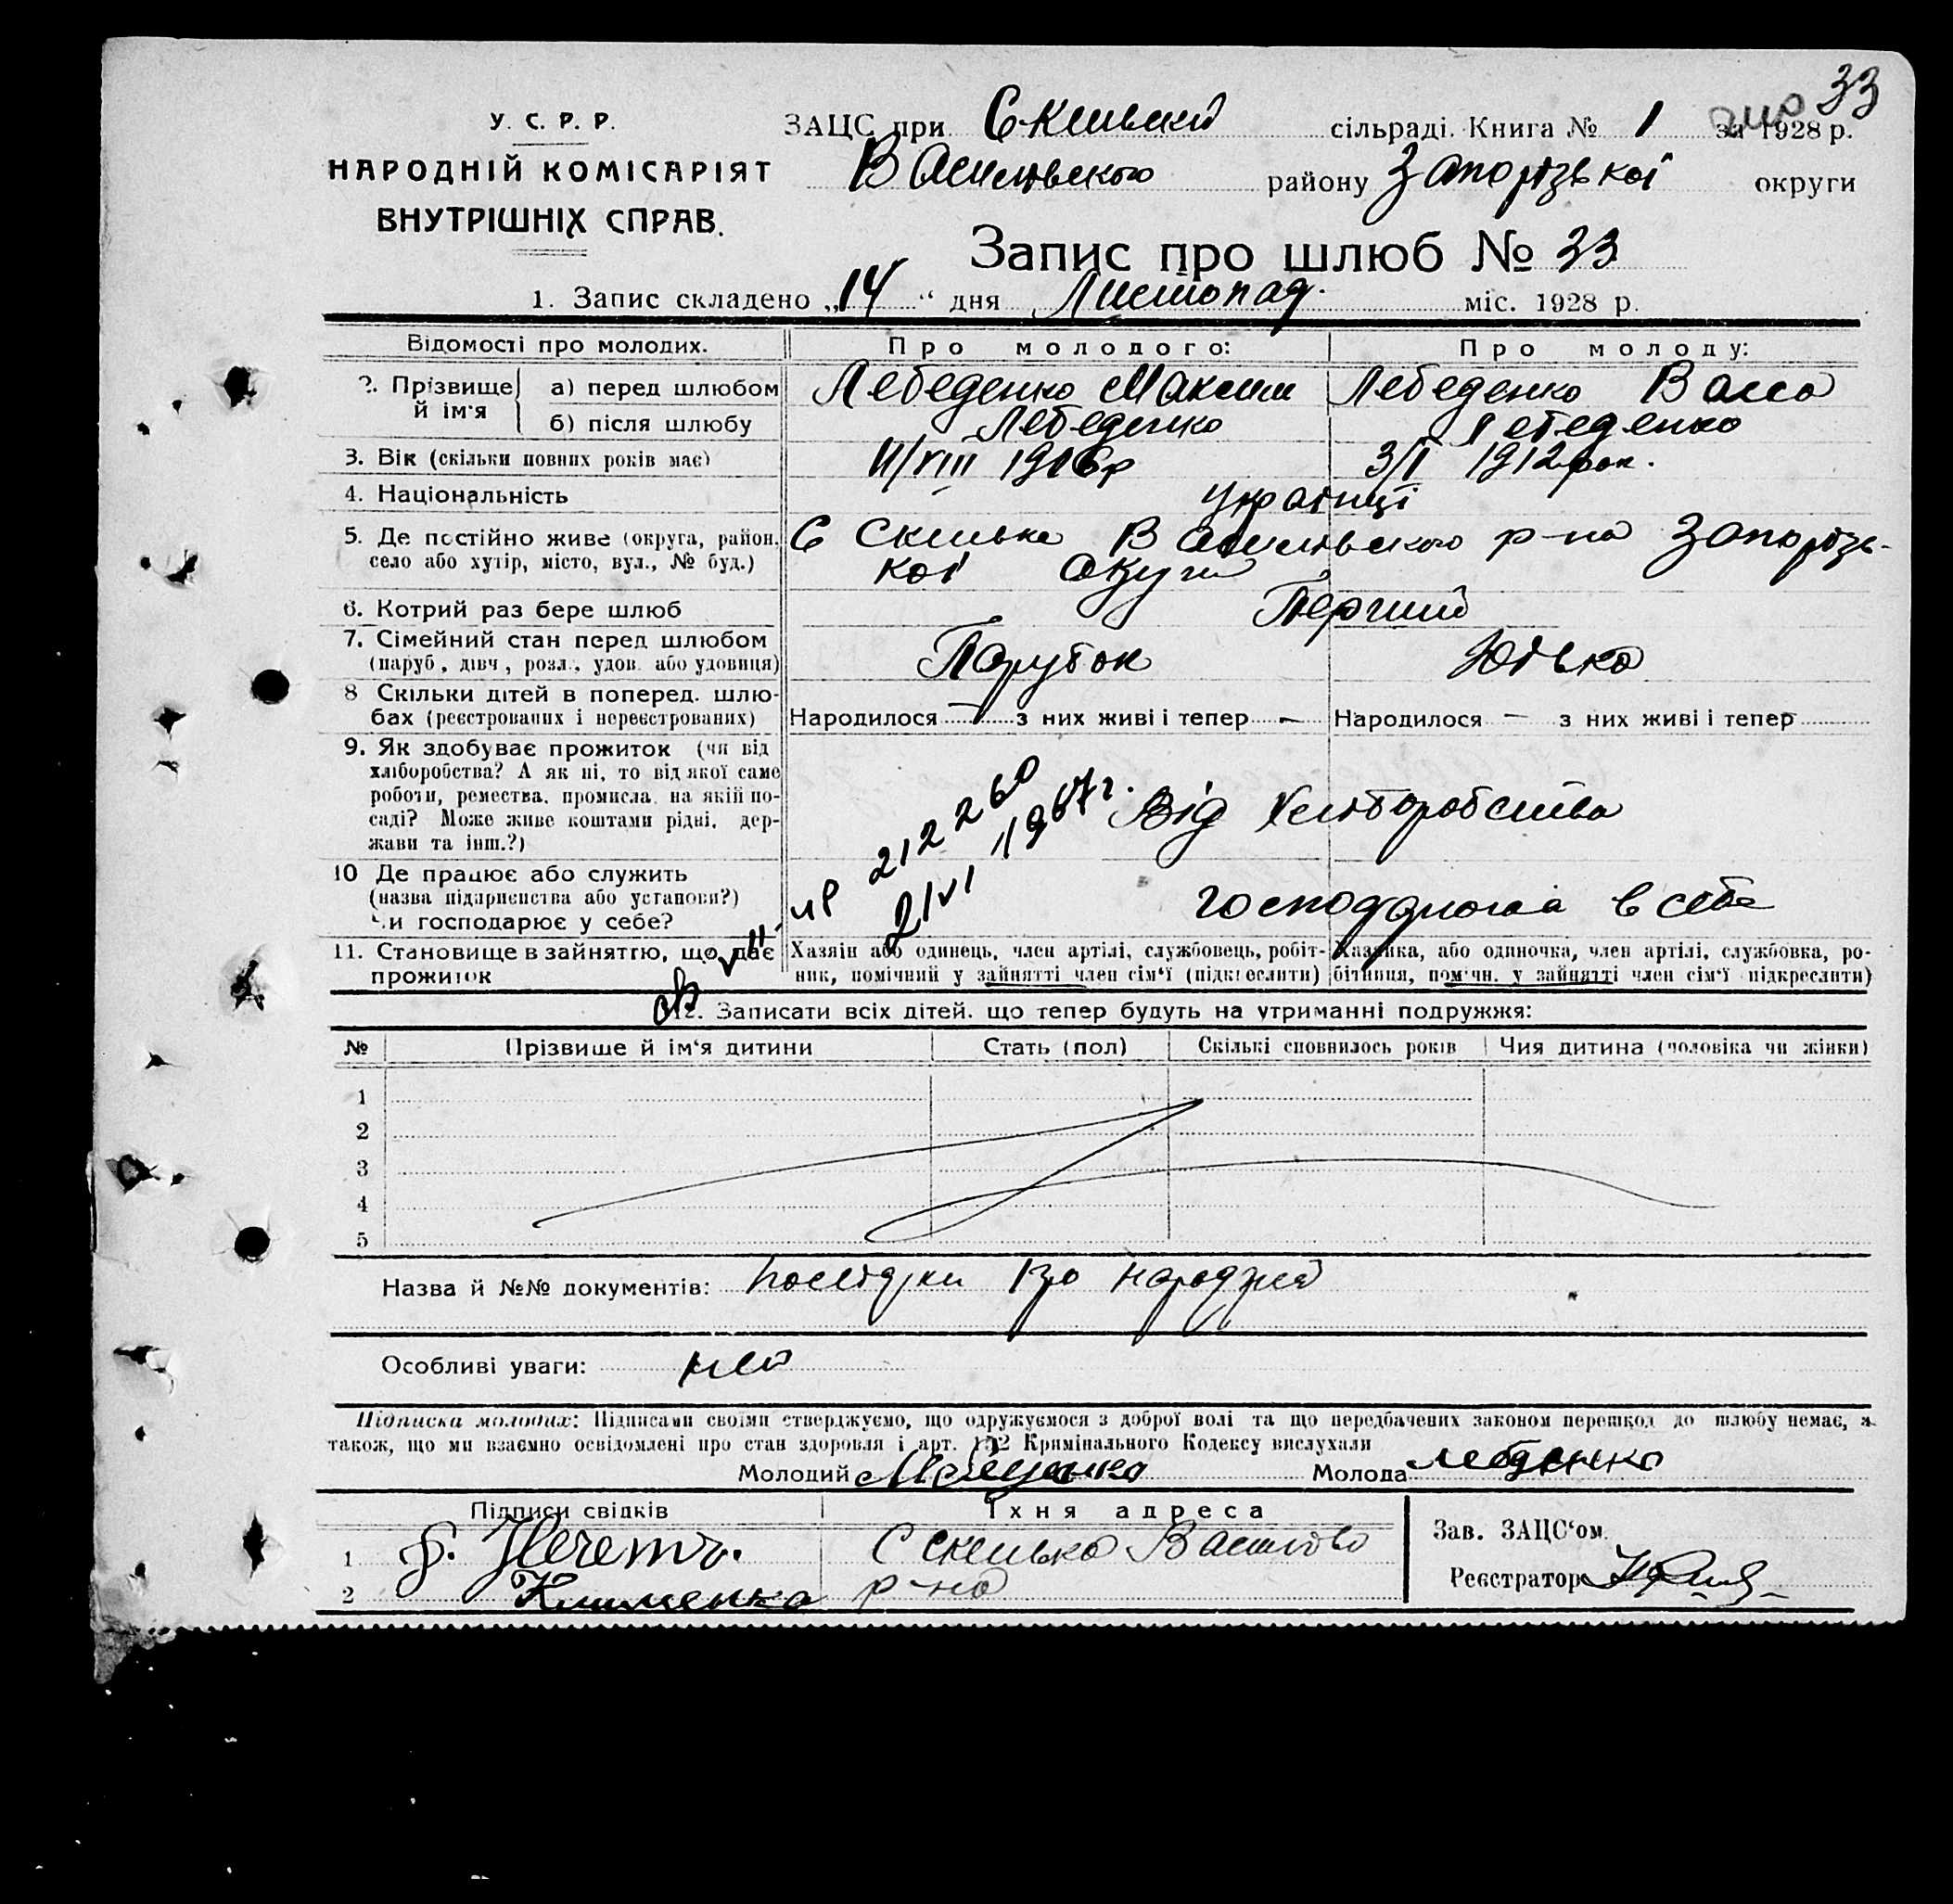 33
У. С. Р. Р.
НАРОДНІЙ КОМІСАРІЯТ
ВНУТРІШНІХ СПРАВ.
ЗАЦС при Скелький сільраді. Книга № 1 за 1928 р.
Василівського району Запорізької округи
Запис про шлюб № 33
1. Запис складено „14“ дня Листопад. міс. 1928 р.
Відомості про молодих. Про молодого: Про молоду:
2. Прізвище й ім'я а) перед шлюбом Лебеденко Максим Лебеденко Васса
б) після шлюбу Лебеденко Лебеденко
3. Вік (скільки повних років має) 11/VIII 1906р 3/I 1912рок.
4. Національність українці
5. Де постійно живе (округа, район, С Скелька Василівського р-на Запорізь-
село або хутір, місто, вул., № буд.) кої округи
6. Котрий раз бере шлюб Перший
7. Сімейний стан перед шлюбом
(паруб., дівч., розл., удов. або удовиця) Парубок Дівка
8 Скільки дітей в поперед. шлю-
бах (реєстрованих і нереєстрованих) Народилося — з них живі і тепер — Народилося — з них живі і тепер
9. Як здобуває прожиток (чи від
хліборобства? А як ні, то від якої саме
роботи, ремества, промисла, на якій по-
саді? Може живе коштами рідні, дер-
жави та інш.?) Від хліборобства
212260
2/VI 1967г.
10 Де працює або служить
(назва підприємства або установи?)
Чи господарює у себе? в себе
11. Становище в зайняттю, що дає
прожиток
Хазяїн або одинець, член артілі, службовець, робіт-
ник, помічний у зайнятті член сім'ї (підкреслити)
Хазяйка, або одиночка, член артілі, службовка, ро-
бітниця, помічн. у зайнятті член сім'ї (підкреслити)
12. Записати всіх дітей, що тепер будуть на утриманні подружжя:
№ Прізвище й ім'я дитини Стать (пол) Скількі сповнилось років Чия дитина (чоловіка чи жінки)
1
2
3
4
5
Назва й №№ документів: посвідки про народжен
Особливі уваги:
Підписка молодих: Підписами своїми стверджуємо, що одружуємося з доброї волі та що передбачених законом перешкод до шлюбу немає, а
також, що ми взаємно освідомлені про стан здоровля і арт. 152 Кримінального Кодексу вислухали
Молодий Молода Лебденко
Підписи свідків Їхня адреса
1 С Скелька Василівсь
2 Клименка р-на
Зав. ЗАЦС'ом
Реєстратор